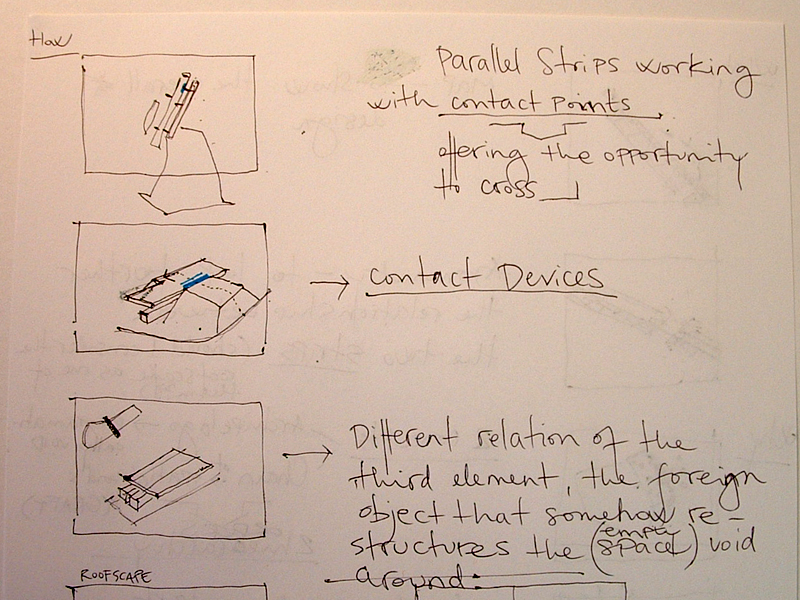 How
Parallel Strips working
with contact points
offering the opportunity
to cross
contact Devices
Different relation of the
third element, the foreign
object that somehow re-
structures the (empty space) void
around:
ROOFSCAPE